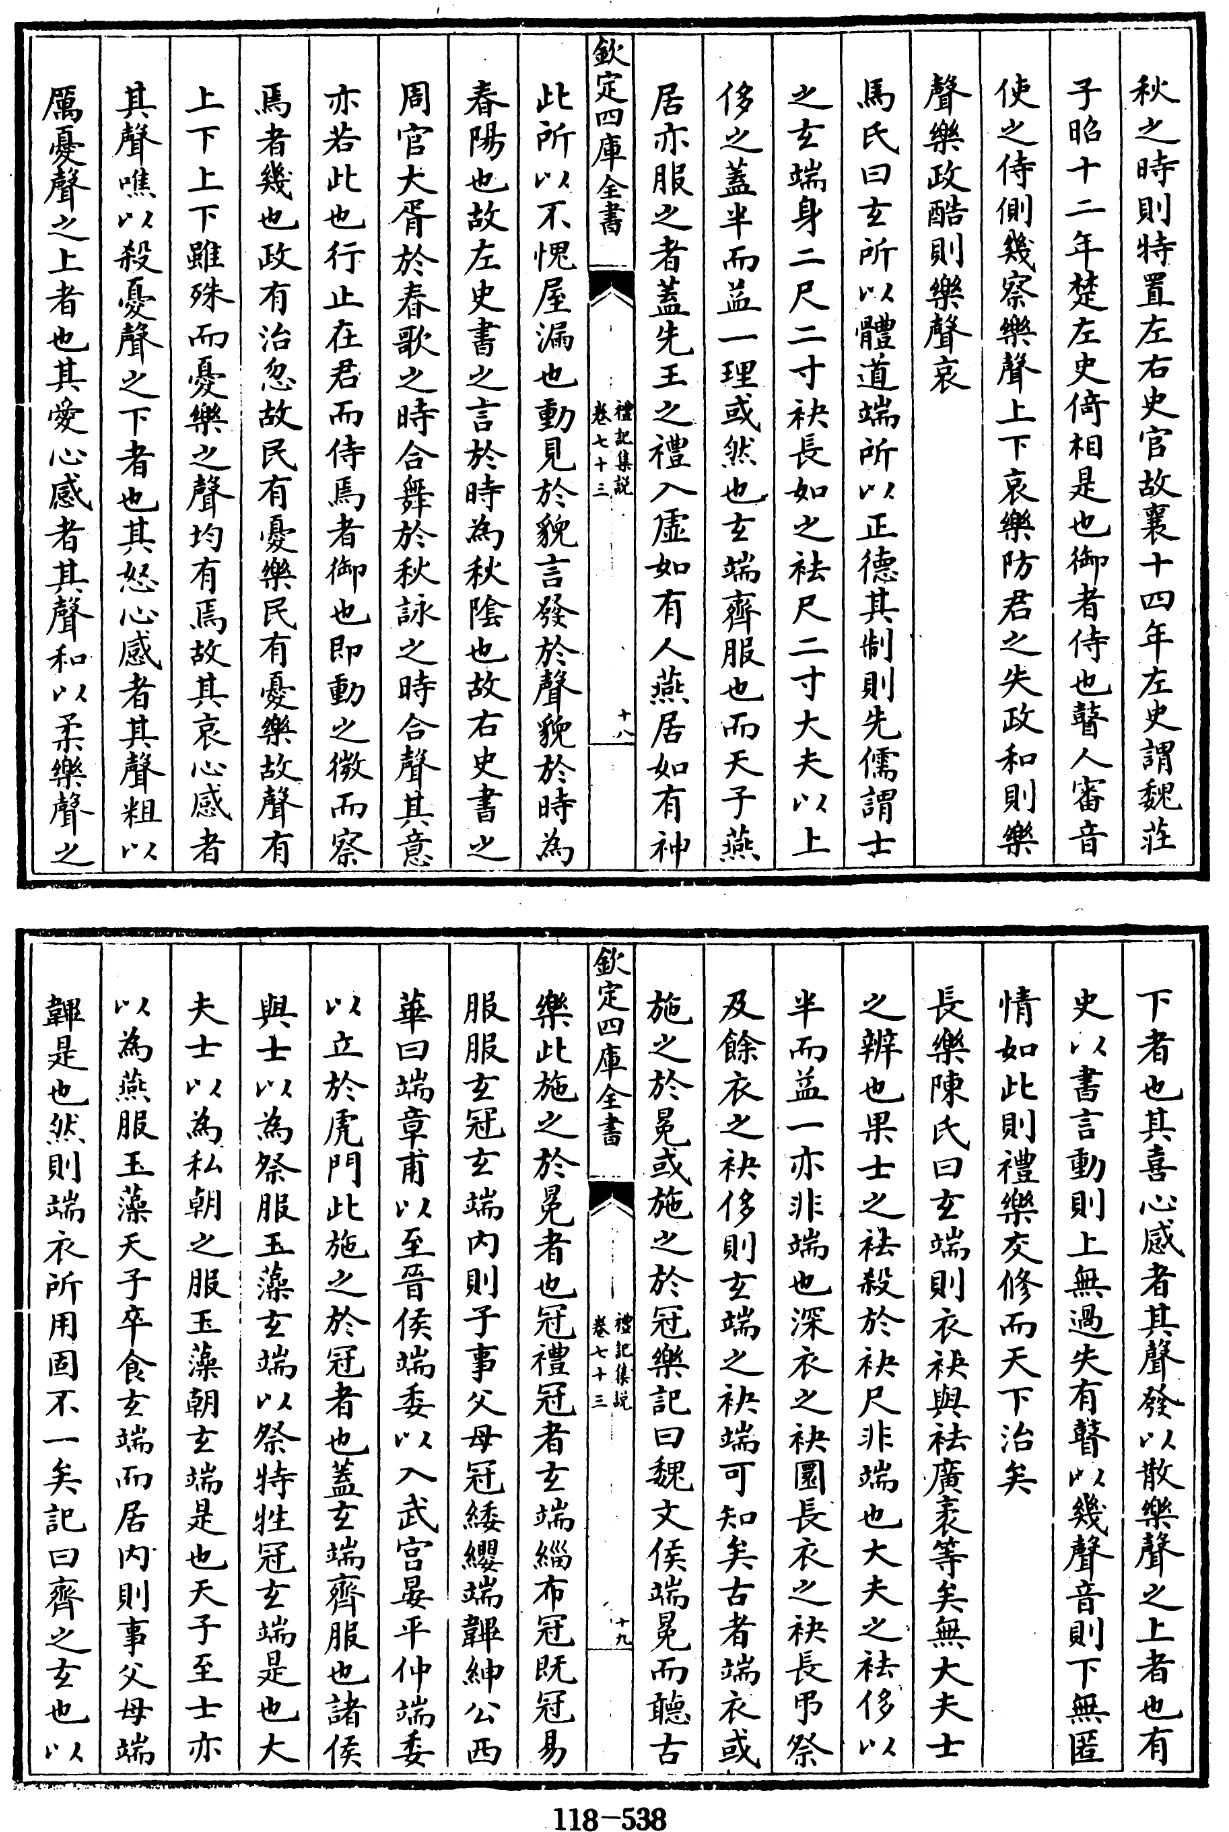 秋之時則特置左右史官故襄十四年左史謂魏莊
子昭十二年楚左史倚相是也御者侍也瞽人審音
使之侍側幾察樂聲上下哀樂防君之失政和則樂
聲樂政酷則樂聲哀
馬氏曰玄所以體道端所以正德其制則先儒謂士
之玄端身二尺二寸袂長如之袪尺二寸大夫以上
侈之蓋半而益一理或然也玄端齊服也而天子燕
居亦服之者蓋先王之禮入虛如有人燕居如有神
欽定四庫全書
禮記集說
卷七十三
十八
此所以不愧屋漏也動見於貌言發於聲貌於時為
春陽也故左史書之言於時為秋陰也故右史書之
周官大胥於春歌之時合舞於秋詠之時合聲其意
亦若此也行止在君而侍焉者御也即動之微而察
焉者幾也政有治忽故民有憂樂民有憂樂故聲有
上下上下雖殊而憂樂之聲均有焉故其哀心感者
其聲噍以殺憂聲之下者也其怒心感者其聲粗以
厲憂聲之上者也其愛心感者其聲和以柔樂聲之
下者也其喜心感者其聲發以散樂聲之上者也有
史以書言動則上無過失有瞽以幾聲音則下無匿
情如此則禮樂交修而天下治矣
長樂陳氏曰玄端則衣袂與袪廣袤等矣無大夫士
之辨也果士之袪殺於袂尺非端也大夫之袪侈以
半而益一亦非端也深衣之袂圜長衣之袂長弔祭
及餘衣之袂侈則玄端之袂端可知矣古者端衣或
施之於冕或施之於冠樂記曰魏文侯端冕而聽古
欽定四庫全書
禮記集說
卷七十三
十九
樂此施之於冕者也冠禮冠者玄端緇布冠既冠易
服服玄冠玄端內則子事父母冠緌纓端韠紳公西
華曰端章甫以至晉侯端委以入武宮晏平仲端委
以立於虎門此施之於冠者也蓋玄端齊服也諸侯
與士以為祭服玉藻玄端以祭特牲冠玄端是也大
夫士以為私朝之服玉藻朝玄端是也天子至士亦
以為燕服玉藻天子卒食玄端而居內則事父母端
韠是也然則端衣所用固不一矣記曰齊之玄也以
118-538